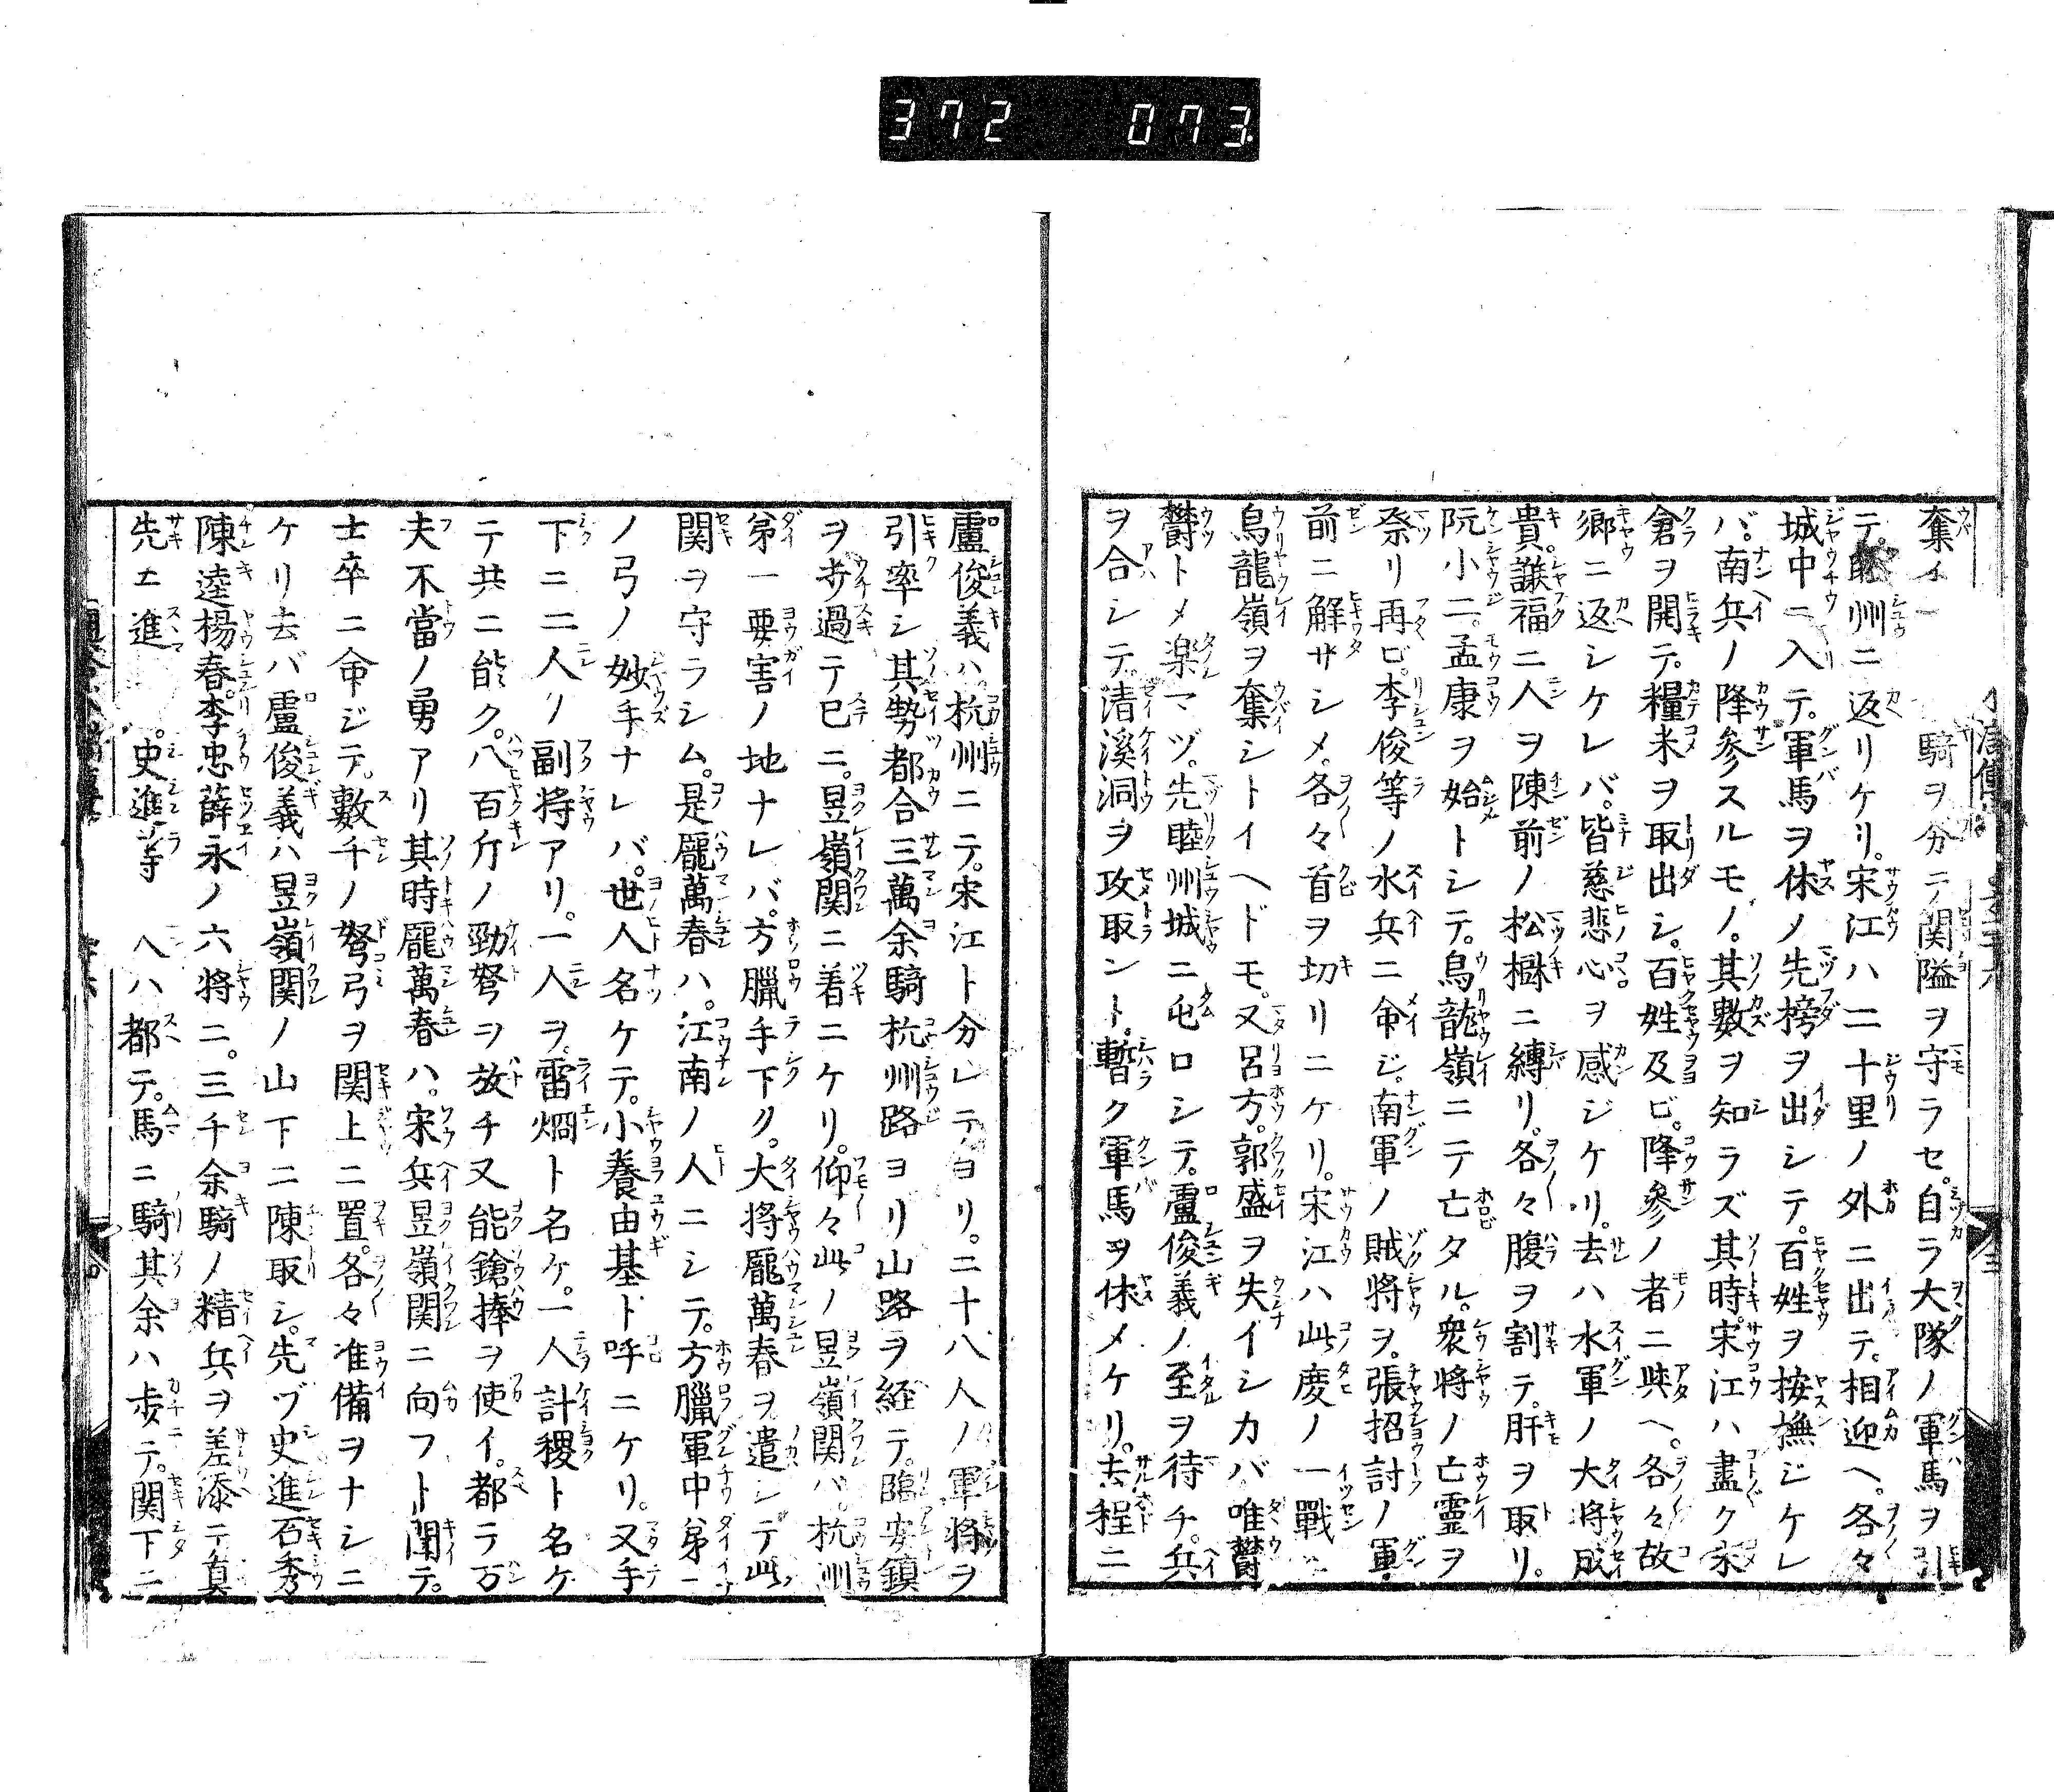 372 073
奪イ 騎ヲ分テ関隘ヲ守ラセ。自ラ大隊ノ軍馬ヲ引
テ。睦州ニ返リケリ。宋江ハ二十里ノ外ニ出テ。相迎ヘ。各々
城中ニ入テ。軍馬ヲ休ノ先榜ヲ出シテ。百姓ヲ按撫ジケレ
バ。南兵ノ降参スルモノ。其數ヲ知ラズ其時。宋江ハ盡ク米
倉ヲ開テ。糧米ヲ取出シ。百姓及ビ。降參ノ者ニ與ヘ。各々故
郷ニ返シケレバ。皆慈悲心ヲ感ジケリ。去ハ水軍ノ大將成
貴。謝福二人ヲ陳前ノ松樹ニ縛リ。各々腹ヲ割テ。肝ヲ取リ。
阮小二。孟康ヲ始トシテ。烏龍嶺ニテ亡タル。衆將ノ亡靈ヲ
祭リ再ビ。李俊等ノ水兵ニ命ジ。南軍ノ賊將ヲ。張招討ノ軍
前ニ解サシメ。各々首ヲ切リニケリ。宋江ハ此慶ノ一戰ニ
烏龍嶺ヲ奪シトイヘドモ。又呂方。郭盛ヲ失イシカバ唯欝
欝トメ楽マヅ。先睦州城ニ屯ロシテ。盧俊義ノ至ヲ待チ。兵
ヲ合シテ。清溪洞ヲ攻取ント。暫ク軍馬ヲ休メケリ。去程ニ
盧俊義ハ。杭州ニテ。宋江ト分レテ。ヨリ。二十八人ノ軍将ヲ
引率シ其勢都合三萬余騎杭州路ヨリ山路ヲ経テ。臨安鎮
ヲ歩過テ巳ニ。昱嶺関ニ着ニケリ。仰々此ノ昱嶺関バ。杭州
第一要害ノ地ナレバ。方臘手下ク。大将龐萬春ヲ遣シテ此
関ヲ守ラシム。是龐萬春ハ。江南ノ人ニシテ。方臘軍中第一
ノ弓ノ妙手ナレバ。世人名ケテ。小養由基ト呼ニケリ。又手
下ニ二人リノ副将アリ。一人ヲ。雷烱ト名ケ。一人計稷ト名ケ
テ共ニ能ク。八百斤ノ勁弩ヲ放チ又能鎗捧ヲ使イ。都テ万
夫不當ノ勇アリ其時龐萬春ハ。宋兵昱嶺関ニ向フト聞テ。
士卒ニ命ジテ。數千ノ弩弓ヲ関上ニ置。各々准備ヲナシニ
ケリ去バ盧俊義ハ昱嶺関ノ山下ニ陳取シ。先ヅ史進石秀
陳逵楊春。李忠薛永ノ六将ニ。三千余騎ノ精兵ヲ差添テ真
先エ進 。史進等 人ハ都テ。馬ニ騎其余ハ歩テ。関下ニ